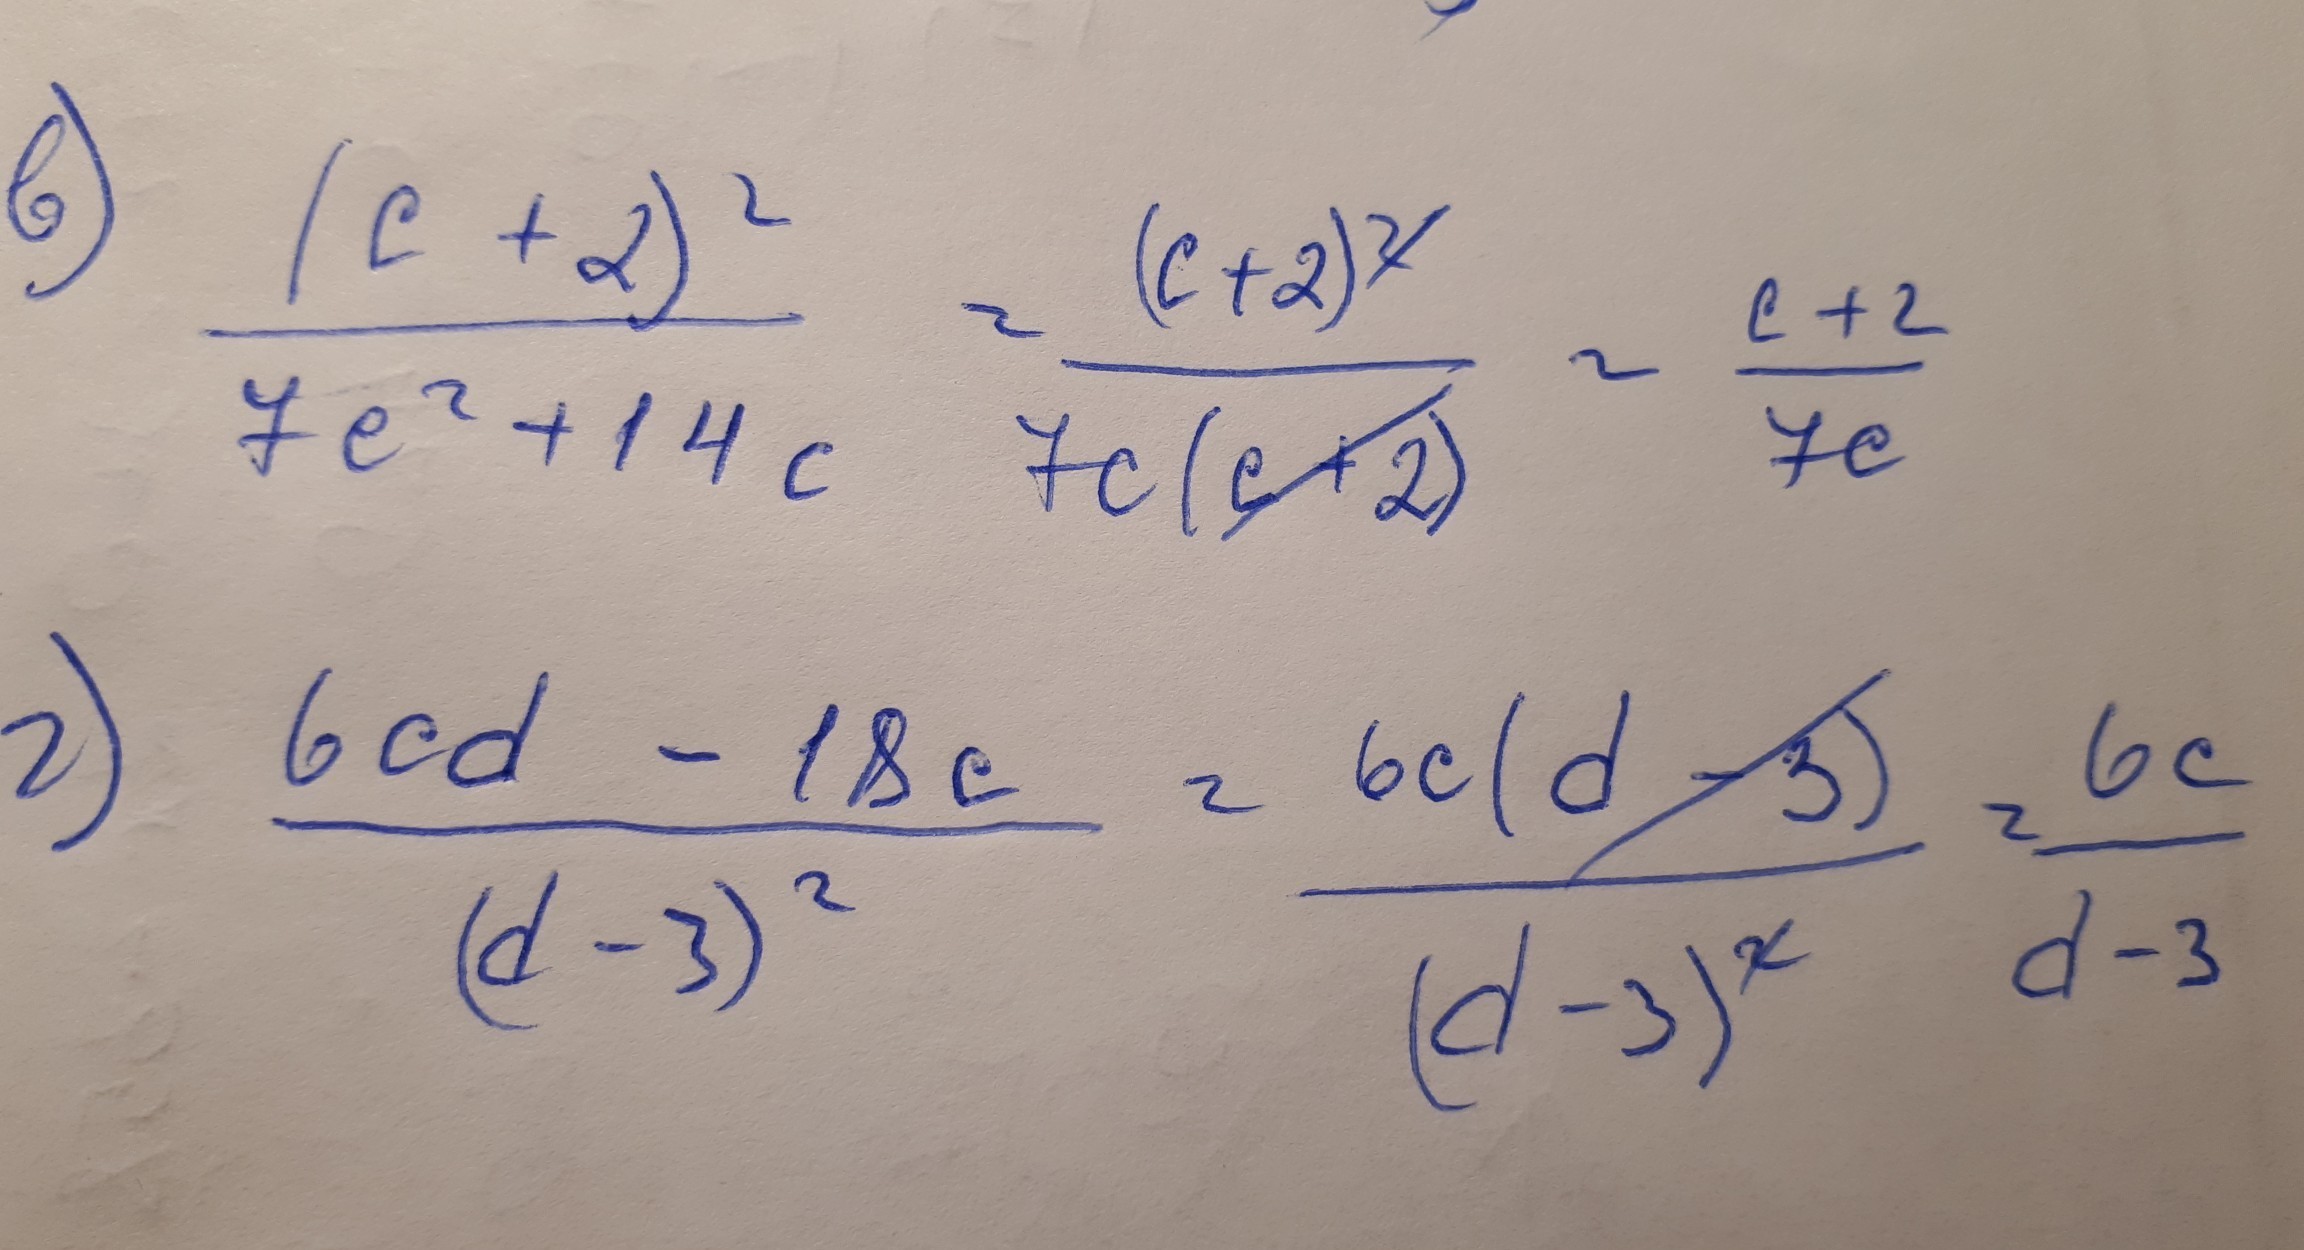 в) (c + 2)² / 7c² + 14c = (c+2)² / 7c(c+2) = c+2 / 7c
г) 6cd - 18c / (d-3)² = 6c(d-3) / (d-3)² = 6c / d-3